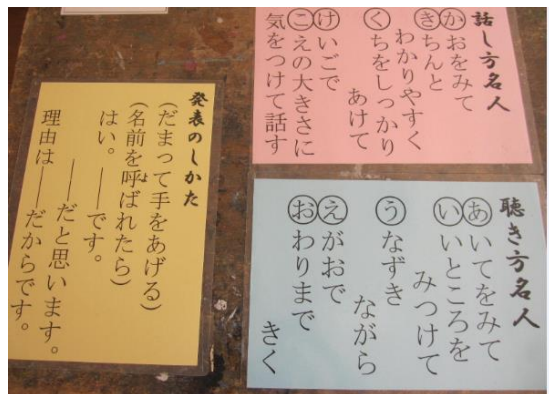 話し方名人
かおをみて
きちんと
わかりやすく
くちをしっかり
あけて
けいごで
こえの大きさに
気をつけて話す
聴き方名人
あいてをみて
いいところを
みつけて
うなずき
ながら
えがおで
おわりまで
きく
発表のしかた
(だまって手をあげる)
(名前を呼ばれたら)
はい。――です。
――だと思います。
理由は――だからです。